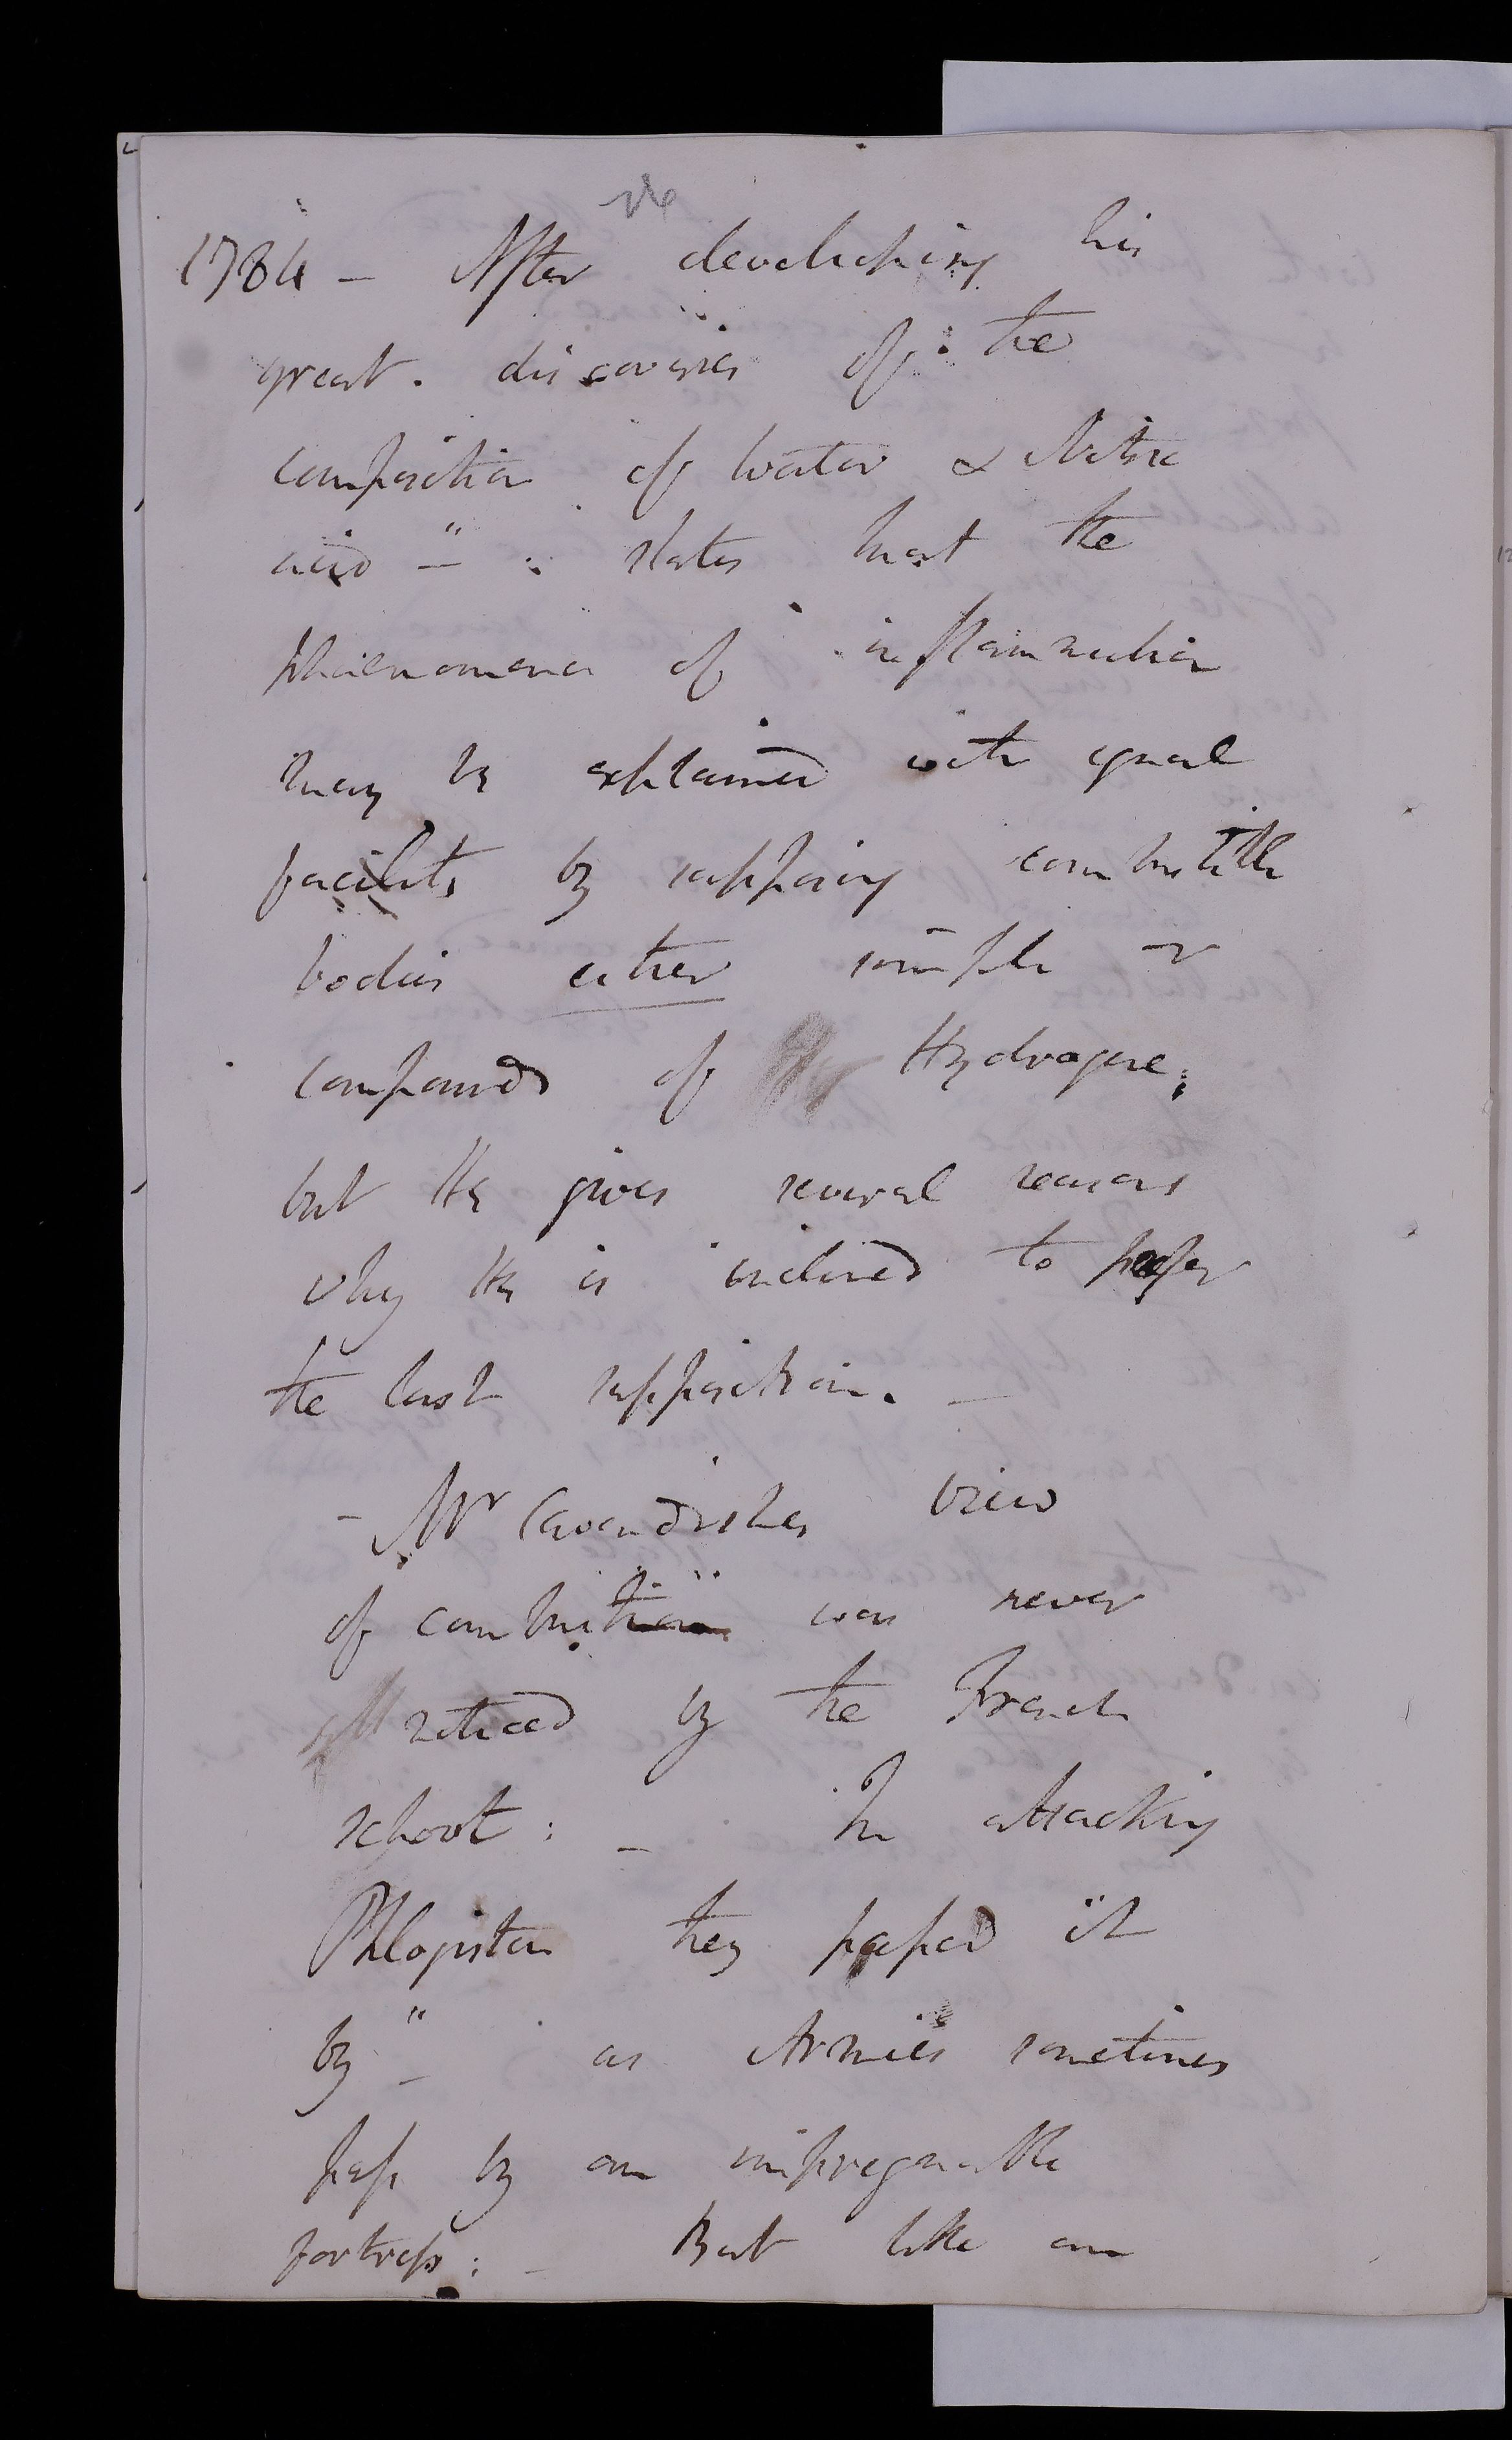 1784 – After developing his
great discoveries of the
composition of water & Nitric
acid – states that the
phaenomena of inflammation
may be explained with equal
facility by supposing combustible
bodies either simple or
compounds of Hydrogene;
but He gives several reasons
why He is inclined to prefer
the last supposition. –
– Mr Cavendishes view
of combustion was never
noticed by the French
school: – In attacking
Phlogiston they passed it
by – as Armies sometimes
pass by an impregnable
fortress: – But like an